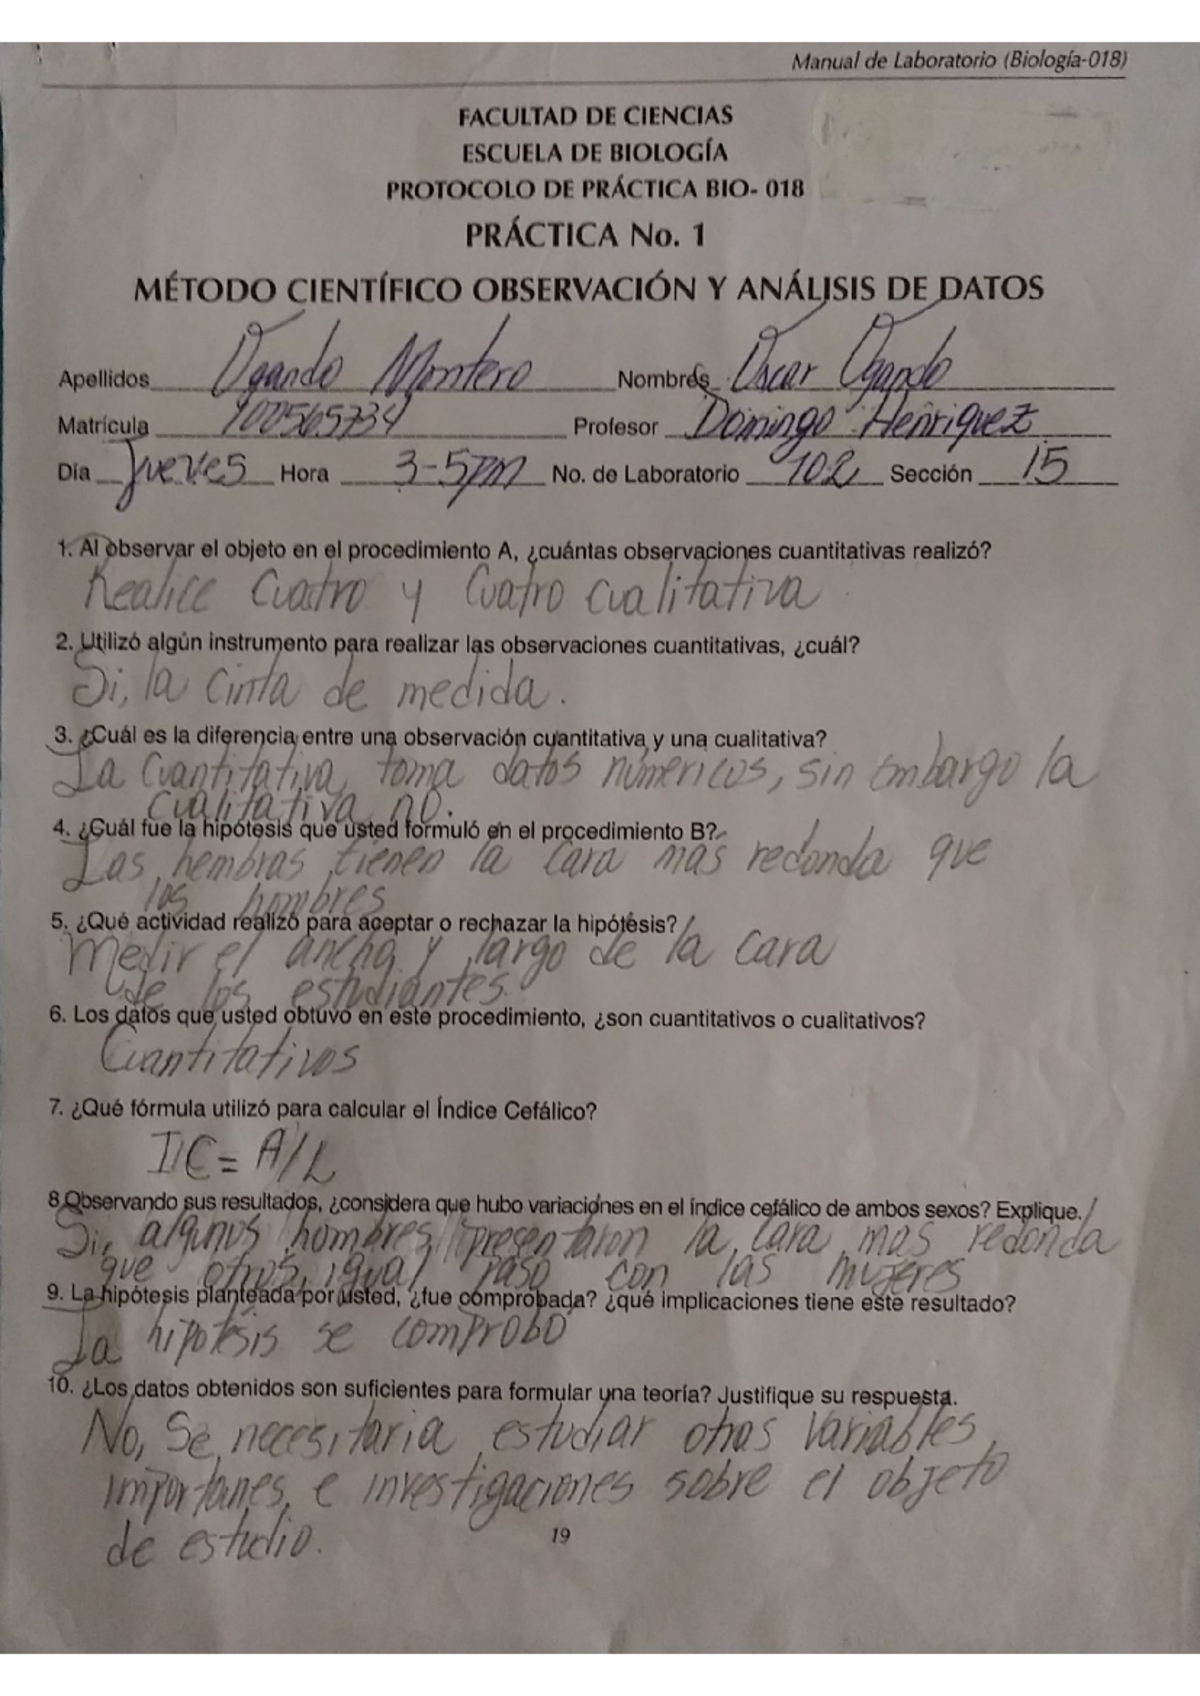 Manual de Laboratorio (Biología-018)
FACULTAD DE CIENCIAS
ESCUELA DE BIOLOGÍA
PROTOCOLO DE PRÁCTICA BIO- 018
PRÁCTICA No. 1
MÉTODO CIENTÍFICO OBSERVACIÓN Y ANÁLISIS DE DATOS
Apellidos Ogando Montero Nombres Oscar Ogando
Matrícula 100565734 Profesor Domingo Henriquez
Día Jueves Hora 3-5pm No. de Laboratorio 102 Sección 15
1. Al observar el objeto en el procedimiento A, ¿cuántas observaciones cuantitativas realizó?
Realice Cuatro y Cuatro cualitativa
2. Utilizó algún instrumento para realizar las observaciones cuantitativas, ¿cuál?
Si, la cinta de medida.
3. ¿Cuál es la diferencia entre una observación cuantitativa y una cualitativa?
La Cuantitativa toma datos númericos, sin embargo la
cualitativa no.
4. ¿Cuál fue la hipótesis que usted formuló en el procedimiento B?
Las hembras tienen la cara mas redonda que
los hombres
5. ¿Qué actividad realizó para aceptar o rechazar la hipótesis?
Medir el ancha y largo de la cara
de los estudiantes.
6. Los datos que usted obtuvo en este procedimiento, ¿son cuantitativos o cualitativos?
Cuantitativos
7. ¿Qué fórmula utilizó para calcular el Índice Cefálico?
IC= A/L
8.Observando sus resultados, ¿considera que hubo variaciones en el índice cefálico de ambos sexos? Explique.
Si, algunos hombres presentaron la cara mas redonda
que otros, igual paso con las mujeres
9. La hipótesis planteada por usted, ¿fue comprobada? ¿qué implicaciones tiene este resultado?
La hipotesis se comprobo
10. ¿Los datos obtenidos son suficientes para formular una teoría? Justifique su respuesta.
No, Se necesitaria estudiar otras Variables
importanes, e investigaciones sobre el objeto
de estudio.
19